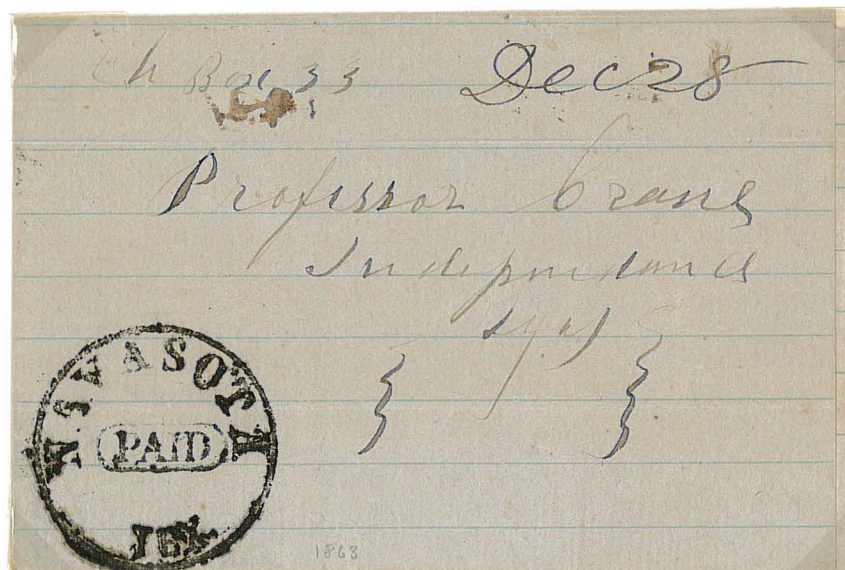 Ch Box 33 Dec 28
Professor Crane
Independance
NAVASOTA
PAID
TEX.
1863